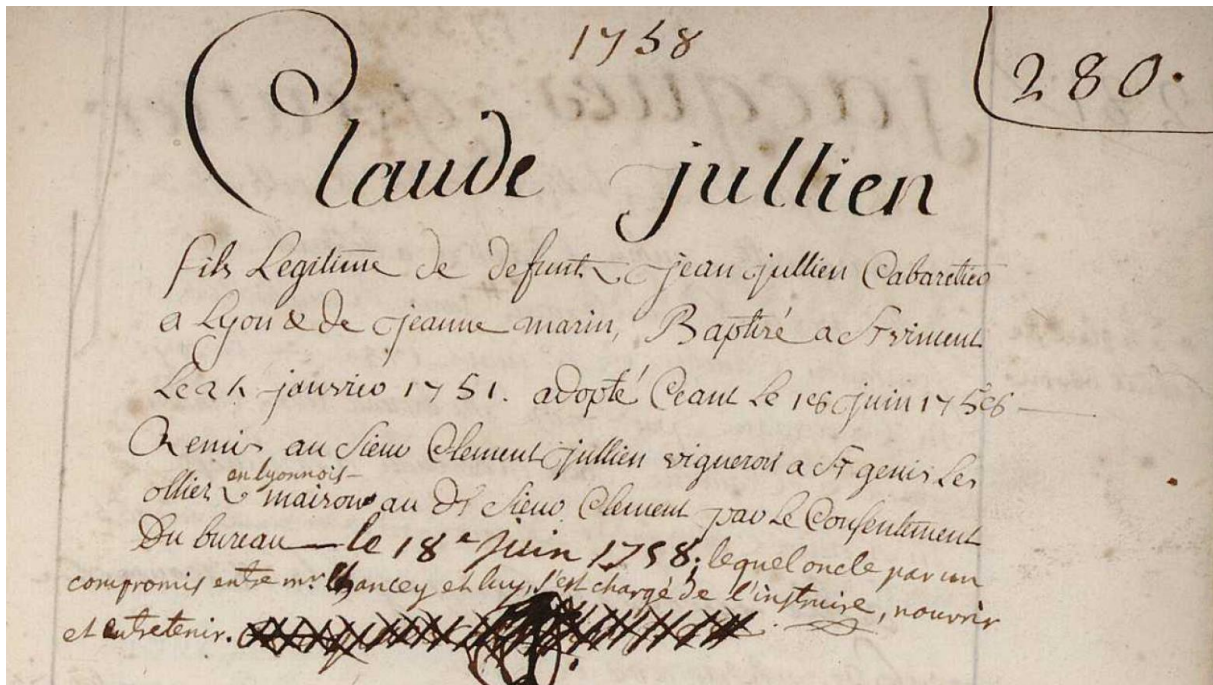 1758
280.
Claude jullien
fils Legitime de defunt jean jullien Cabaretier
a Lyon & de jeanne marin, Baptisé a St viment
Le janvier 1751. adopté Ceant Le juin
Remis au Sieur Clement jullien vigneron a St genis Les
en lyonnois
ollier maison au dt Sieur Clement par Le Consentement
Du bureau le 18e juin 1758; lequel oncle par un
compromis entre mr Chancey et luy, s'est chargé de l'instruire, nourrir
et entretenir.